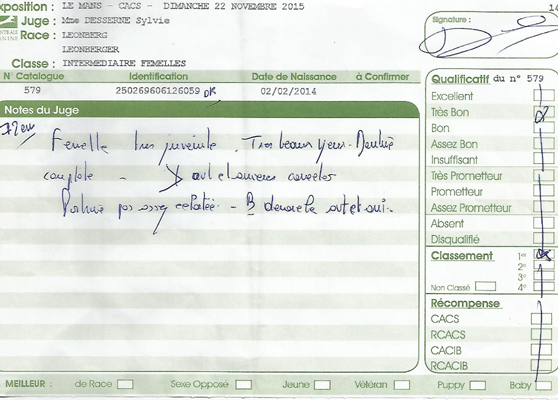 xposition : LE MANS - CACS - DIMANCHE 22 NOVEMBRE 2015
Juge : Mme DESSERNE Sylvie
Race : LEONBERG
LEONBERGER
Classe : INTERMEDIAIRE FEMELLES
Signature :
N° Catalogue Identification Date de Naissance à Confirmer
579 250269606126059 OK 02/02/2014
Notes du Juge
Femelle très juvenile. Tres beaux yeux. Denture
complete -
Poitrine pas assez eclatée - B demarche
Qualificatif du n° 579
Excellent
Très Bon
Bon
Assez Bon
Insuffisant
Très Prometteur
Prometteur
Assez Prometteur
Absent
Disqualifié
Classement 1er
2e
3e
Non Classé 4e
Récompense
CACS
RCACS
CACIB
RCACIB
MEILLEUR : de Race Sexe Opposé Jeune Vétéran Puppy Baby